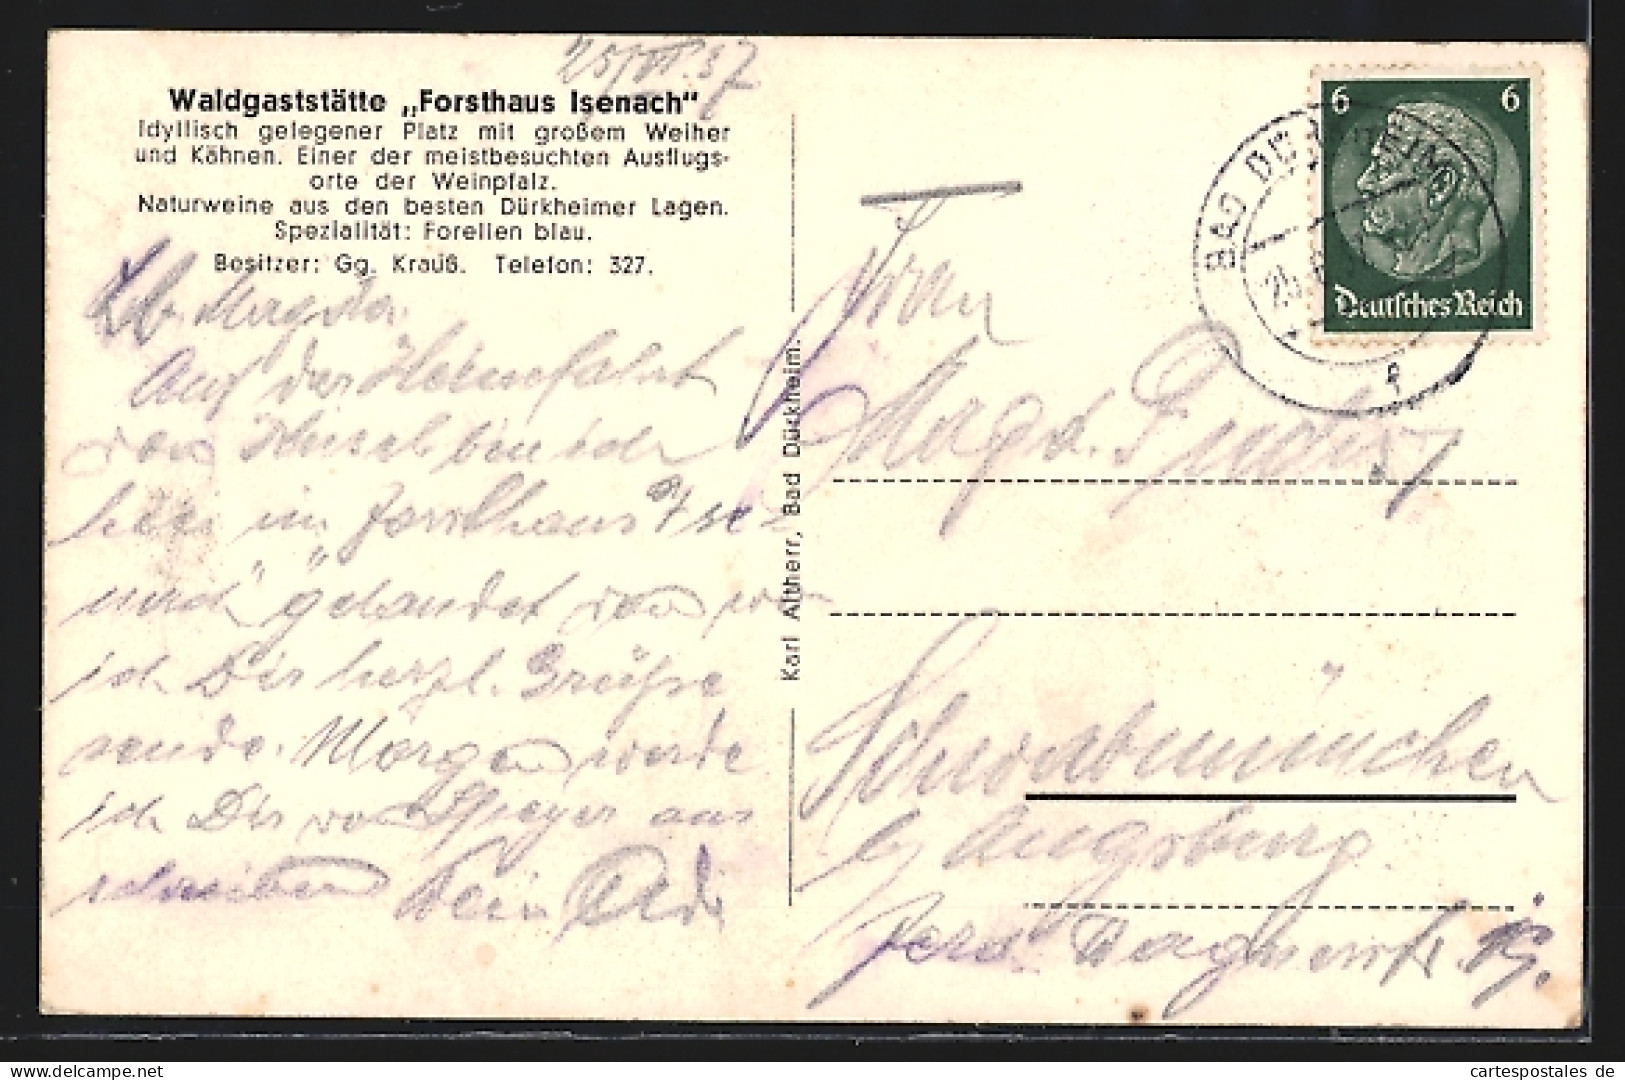 Waldgaststätte „Forsthaus Isenach"
Idyllisch gelegener Platz mit großem Weiher
und Kähnen. Einer der meistbesuchten Ausflugs-
orte der Weinpfalz.
Naturweine aus den besten Dürkheimer Lagen.
Spezialität: Forellen blau.
Besitzer: Gg. Krauß. Telefon: 327.
Lb. Magda.
Auf der Heimfahrt
von bin ich
hier im Forsthaus Ise-
nach gelandet von wo
ich Dir herzl. Grüße
sende. Morgen werde
ich Dir von Speyer aus
schreiben Dein
Karl Altherr, Bad Dückheim.
6 6
Deutsches Reich
BAD DÜRKHEIM
Frau
Magd.
Schwabmünchen
b/ Augsburg.